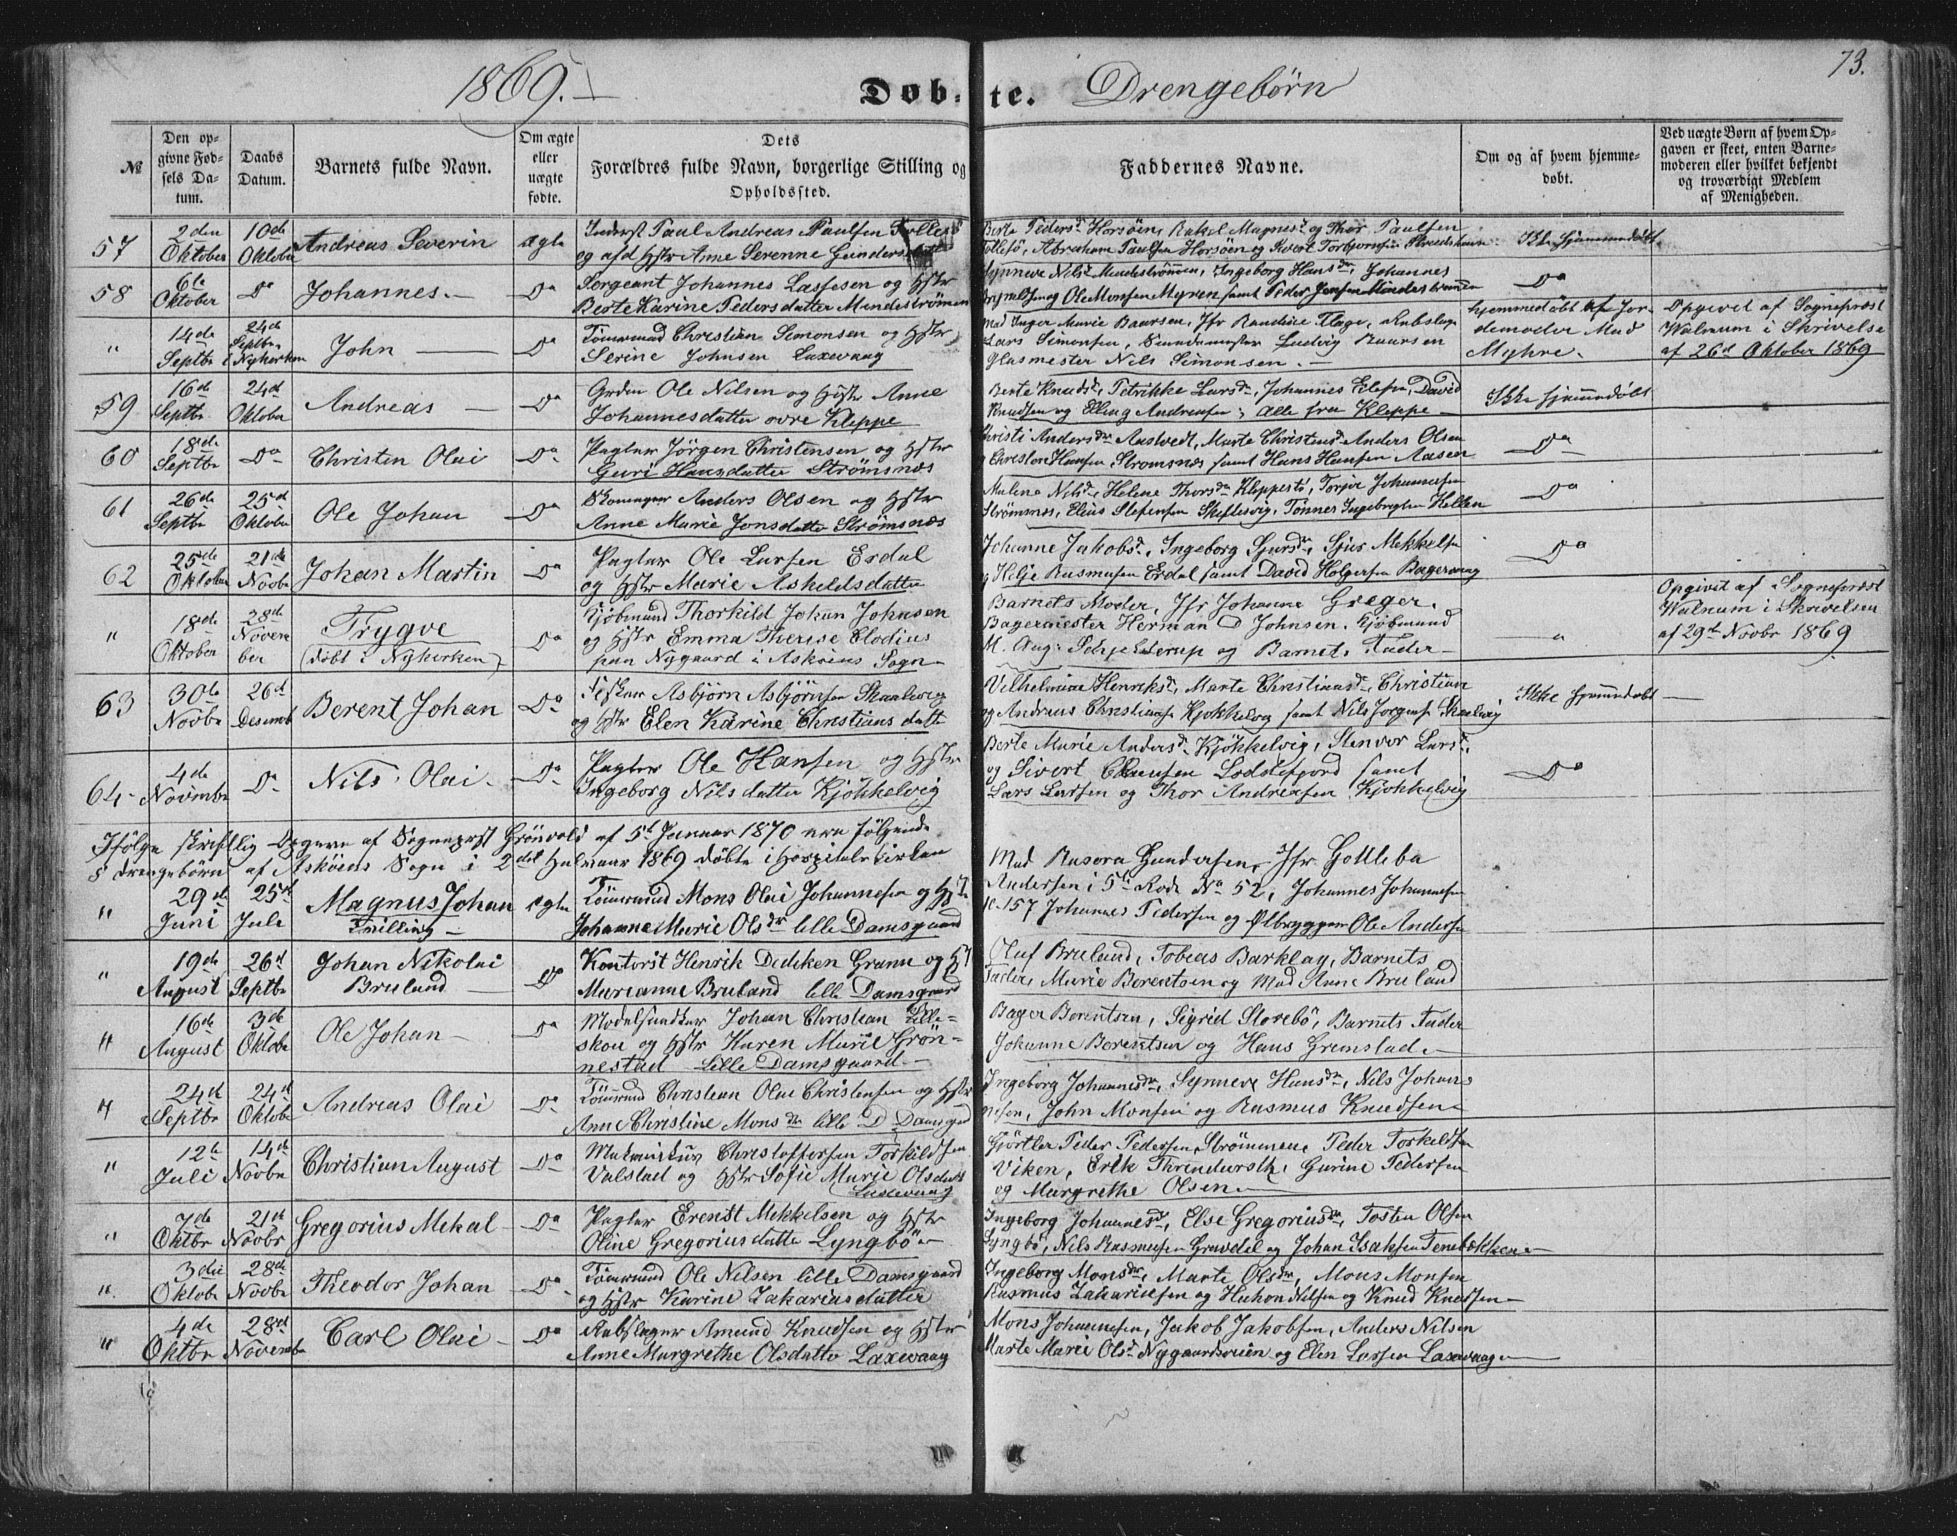 73.
1869.
Døbte. Drengebørn
№
Den opgivne Fødsels Datum.
Daabs Datum.
Barnets fulde Navn.
Om ægte eller uægte fødte.
Dets Forældres fulde Navn, borgerlige Stilling og Opholdssted.
Faddernes Navne.
Om og af hvem hjemmedøbt.
Ved uægte Børn af hvem Opgaven er skeet, enten Barnemoderen eller hvilket bekjendt og troværdigt Medlem af Menigheden.
57 2den Oktober 10de Oktober Andreas Severin ægte
Inderst Paul Andreas Paulsen
og Hstr Anne Serenne
Berte Peders Horsöen, Rakel Magnes og Thor Paulsen
Follesö, Abraham Paulsen Horsöen og
Ikke hjemmedöbt
58 6te Oktober Do Johannes Do
Sergeant Johannes Lassesen og Hstr
Berte Karine Pedersdatter Mindeströmen
Synneve Nils Mindeströmmen, Ingeborg Hansdr, Johannes
og Ole Monsen Myren samt Peder Jensen Mindeströmmen
Do
" 14de Septbr 24de Septbr i Nykerken John Do
Tömmrmand Christian Simonsen og Hstr
Serine Johnsen Laxevaag
Mad Inger Marie Baarsen, Jfr Randine Flage, Rebslager
Lars Simonsen, Ludvig Baarsen
Glasmester Nils Simonsen
hjemmedöbt af Jordemoder Mad Myhre.
Opgivet af Sogneprest
Walnum i Skrivelse
af 26d Oktober 1869
59 16de Septbr 24de Oktober Andreas Do
Grdm Ole Nilsen og Hstr Anne
Johannesdatter övre Kleppe
Berte Knudsd, Petrikke Larsd, Johannes David
Knudsen og Elling Andreasen; alle fra Kleppe
Ikke hjemmedöbt
60 18de Septbr Do Christen Olai Do
Pagter Jörgen Christensen og Hstr
Guri Hansdatter Strömsnæs
Christi Andersdr Aastvedt, Marte Christensdr Anders Olsen
Hansen Strömsnæs samt Hans Hansen Aasen
Do
61 26de Septbr 25d Oktober Ole Johan Do
Skomager Anders Olsen og Hstr
Anne Marie Jonsdatter Strömsnæs
Malene Nilsd, Helene Thorsdr Kleppestö, Torger Johannesen
Strömsnæs, Elias Stefensen Skiftesvig, Tönnes Ingebrigtsen Hellen
Do
62 25de Oktober 21de Novbr Johan Martin Do
Pagter Ole Larsen Erdal
og Hstr Marie Askeldsdatter
Johanne Jakobsd, Ingeborg Sjursdr, Sjur Mekkelsen
Helje Rasmusen Erdal samt David Holgersen Bagervaag
Do
" 18de Oktober 28de November Trygve (döbt i Nykerken) Do
Kjöbmand Thorkild Johan Johnsen
og Hstr Emma Therese Clodius
paa Nygaard i Asköens Sogn
Barnets Moder, Jfr Johanne Greger
Bagermester Herman D Johnsen, Kjöbmand
M. Aug. Schjelderup og Barnets Fader
"
Opgivet af Sogneprest
Walnum i Skrivelsen
af 29d Novbr 1869
63 30te Novbr 26d Desemb Berent Johan Do
Fisker Asbjörn Asbjörnsen Skaalevig
og Hstr Elen Karine Christiansdatt
Vilhelmine Henriksd, Marte Christiansd, Christian
og Andreas Christiansen Kjökkelvig samt Nils Jörgens Skaalevig
Ikke hjemmedöbt
64 4de Novmbr Do Nils Olai Do
Pagter Ole Hansen og Hstr
Ingeborg Nilsdatter Kjökkelvig
Berte Marie Andersd Kjökkelvig, Stenvor Larsd,
og Sivert Clausen Loddefjord samt
Lars Larsen og Thor Andreasen Kjökkelvig
Do
Ifölge skriftlig Opgave af Sogneprst Grönvold af 5d Januar 1870 ere fölgende
8 drengebörn af Asköens Sogn i 2det Halvaar 1869 döbte i Hospitalskirken
" 29de Juni 25de Jule Magnus Johan Tvilling ægte
Tömrmand Mons Olai Johannesen og Hst
Johanne Marie Olsdr lille Damsgaard
Mad Rasora Gundersen, Jfr Gottleba
Andersen i 5te Rode No 52, Johannes Johannesen
157 Johannes Pedersen og Ölbrygger Ole Andersen
" 19de August 26d Septbr Johan Nikolai Bruland Do
Kontorist Henrik Dediken Grann og Hst
Marianne Bruland lille Damsgaard
Oluf Bruland, Tobias Barklay, Barnets
Fader, Marie Berentsen og Mad Anne Bruland
" 16de August 3de Oktobr Ole Johan Do
Modelsnedker Johan Christian Lilleskou og Hstr Karen Marie Grönnestad lille Damsgaard
Bager Berentsen, Sigrid Storebö, Barnets Fader
Johanne Berentsen og Hans Gremstad
" 24d Septbr 24d Oktobr Andreas Olai Do
Tömrmand Christian Olai Christensen og Hstr
Anne Christine Monsdr lille D Damsgrd
Ingeborg Johannesdr, Synneve Hansdr, Nils Johannesen, John Monsen og Rasmus Knudsen
" 12te Juli 14de Novbr Christian August Do
Maskinist Christoffersen Torkildsen
Valstad og Hstr Sofie Marie Olsdatt
Laxevaag
Gjörtler Peder Pedersen Strömmen, Peder Torkildsen
Viken, Erik Gurine Pedersen
og Margrethe Olsen
" 7de Oktbr 21de Novbr Gregorius Mekal Do
Pagter Erenst Mekkelsen og Hstr
Oline Gregoriusdatter Lyngbö
Ingeborg Johannesd, Else Gregoriusdr, Tosten Olsen
Lyngbö, Nils Rasmusen Gravdal og Johan Isaksen Tenebækken
" 3die Oktobr 28de Novbr Theodor Johan Do
Tömrmand Ole Nilsen lille Damsgaard
og Hstr Karine Zakariasdatter
Ingeborg Monsdr, Marte Olsdr, Mons Monsen
Rasmus Zakariesen og Haakon Nilsen og Knud Knudsen
" 4de Oktbr 28de Novembr Carl Olai Do
Rebslager Amund Knudsen og Hstr
Anne Margrethe Olsdatter Laxevaag
Mons Johannesen, Jakob Jakobsen, Anders Nilsen
Marte Marie Olsd Nygaardsveien og Elen Larsen Laxevaag